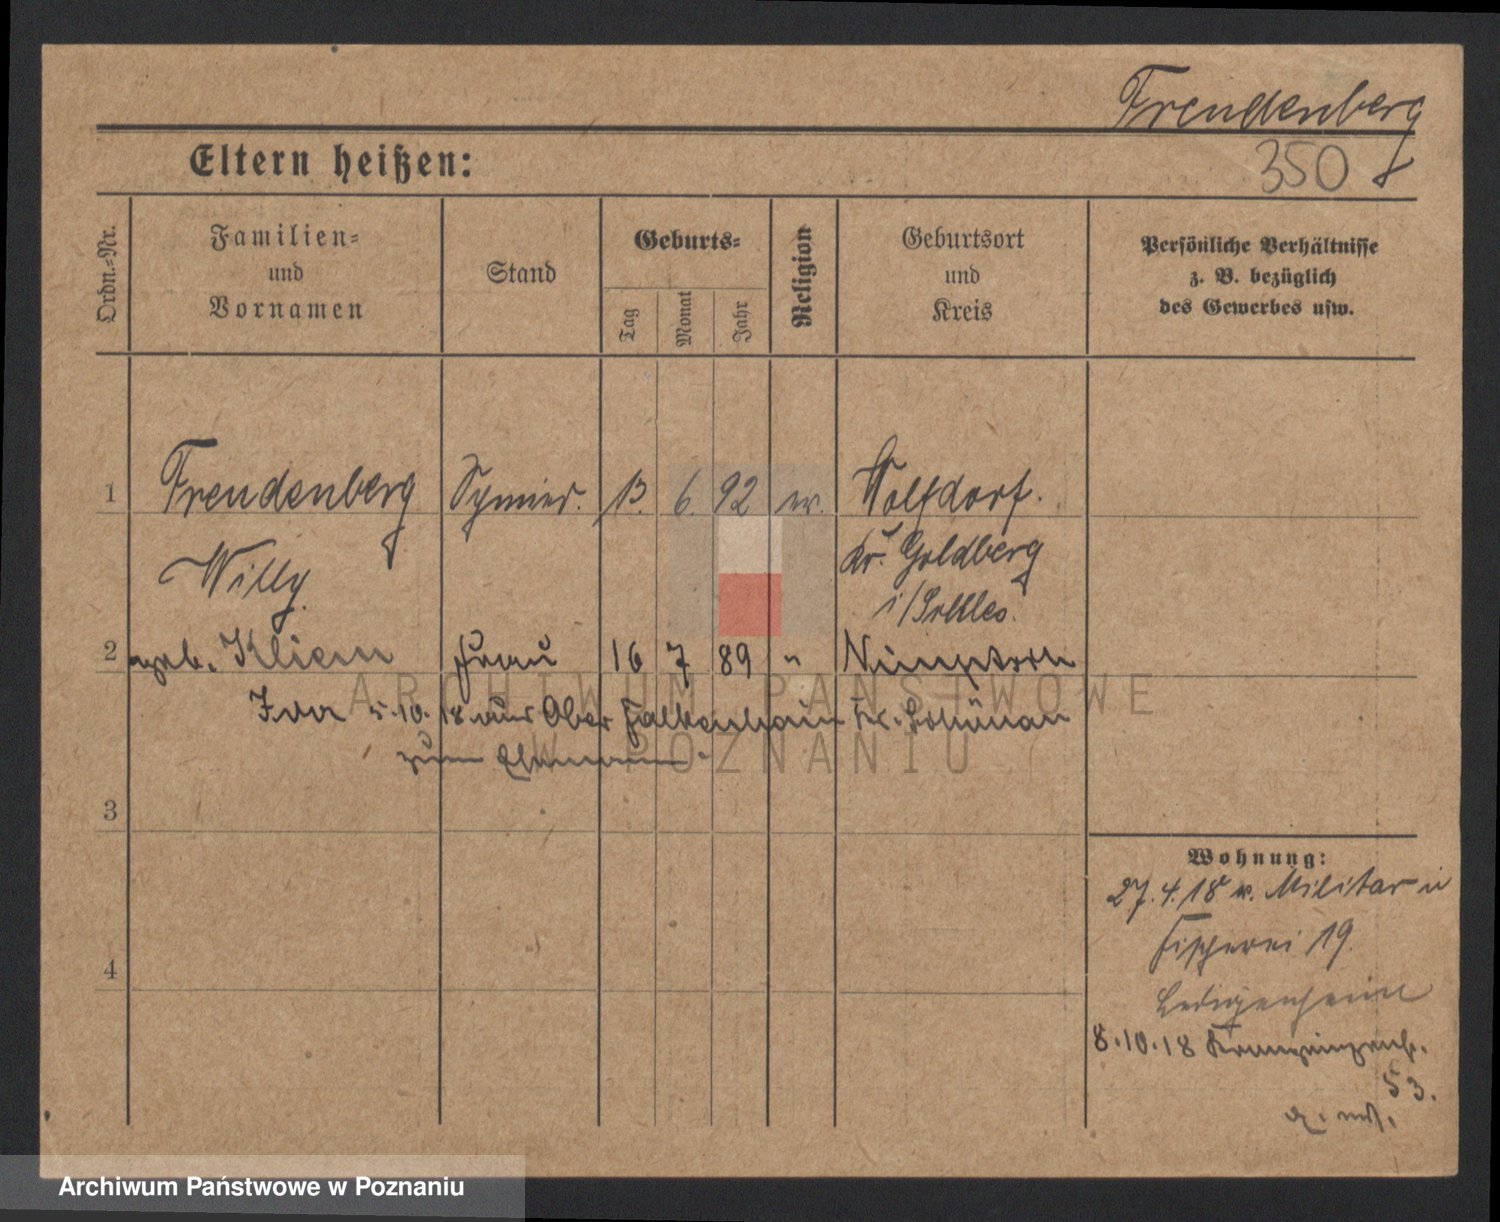 Freudenberg
350
Eltern heißen:
Ordn.-Nr.
Familien- und Vornamen
Stand
Geburts-
Tag
Monat
Jahr
Religion
Geburtsort und Kreis
Persönliche Verhältnisse
z. B. bezüglich
des Gewerbes usw.
1 Freudenberg 13. 6. 92 ev. Wolfsdorf.
Willy Kr. Goldberg
i/Schles.
2 geb. Kliem Frau 16 7 89 "
5.10.18 aus Ober Falkenhain Kr. Schönau
zum Ehemann
3
4
Wohnung:
27.4.18 v. Militär in
Fischerei 19.
Ledigenheim
8.10.18
53.
ARCHIWUM PAŃSTWOWE
W POZNANIU
Archiwum Państwowe w Poznaniu